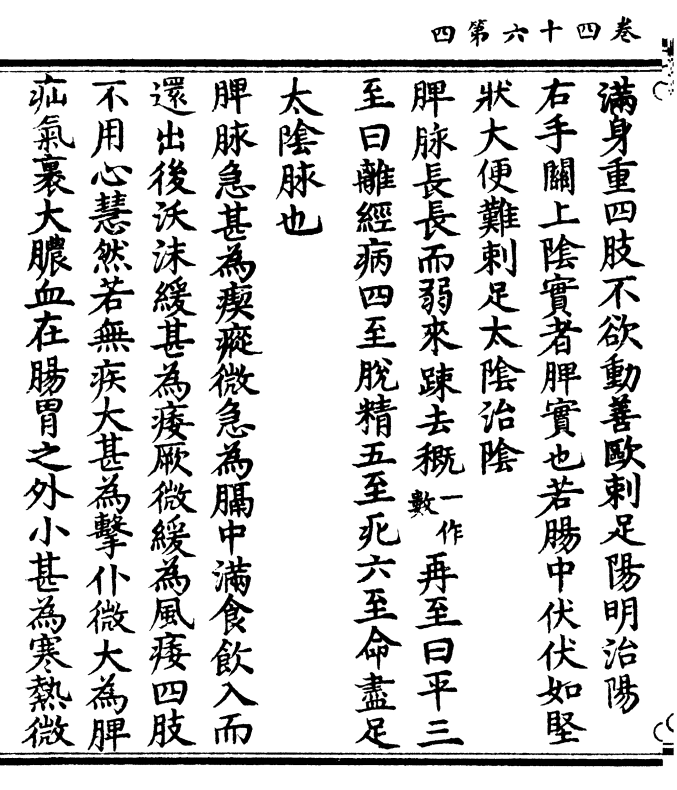 卷四十六第四
滿身重四肢不欲動善歐刺足陽明治陽
右手關上陰實者脾實也若腸中伏伏如堅
狀大便難刺足太陰治陰
脾脉長長而弱來踈去穊一作數再至曰平三
至曰離經病四至脫精五至死六至命盡足
太陰脉也
脾脉急甚為瘈瘲微急為膈中滿食飲入而
還出後沃沫緩甚為痿厥微緩為風痿四肢
不用心慧然若無疾大甚為擊仆微大為脾
疝氣裹大膿血在腸胃之外小甚為寒熱微